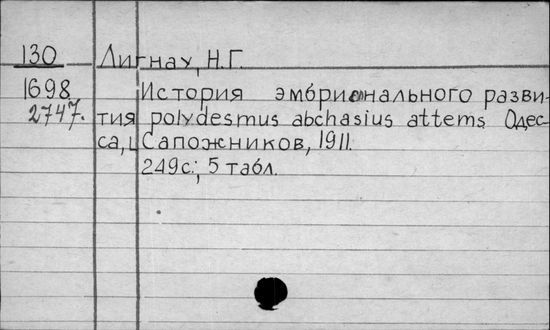 130 Лигнау, Н.Г.
1698 История эмбрионального разви-
2747. тия polydesmus abchasius attems Одес-
са, Сапожников, 1911.
249с.; 5 табл.